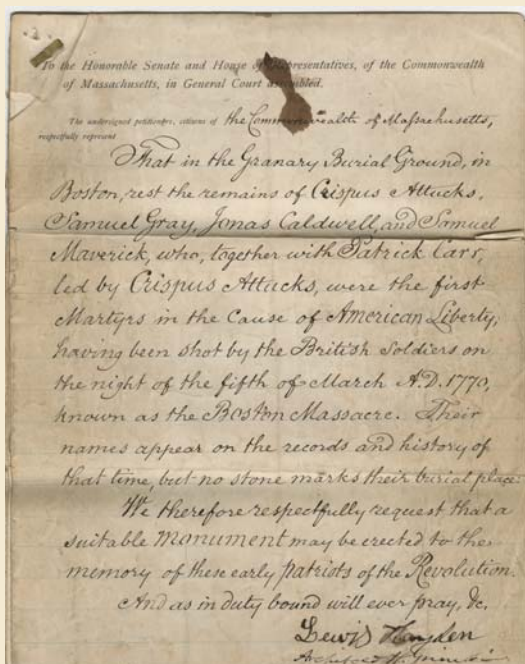 To the Honorable Senate and House of Representatives, of the Commonwealth
of Massachusetts, in General Court assembled.
The undersigned petitioners, citizens of the Commonwealth of Massachusetts,
respectfully represent
That in the Granary Burial Ground, in
Boston, rest the remains of Crispus Attucks,
Samuel Gray, Jonas Caldwell, and Samuel
Maverick, who, together with Patrick Carr,
led by Crispus Attucks, were the first
Martyrs in the Cause of American Liberty,
having been shot by the British Soldiers on
the night of the fifth of March A.D. 1770,
known as the Boston Massacre. Their
names appear on the records and history of
that time, but no stone marks their burial place.
We therefore respectfully request that a
suitable Monument may be erected to the
memory of these early patriots of the Revolution.
And as in duty bound will ever pray, &c.
Lewis Hayden